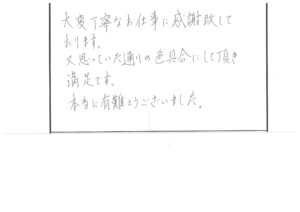 大変丁寧なお仕事に感謝致して
おります。
又思っていた通りの色具合にして頂き
満足です。
本当に有難とうございました。